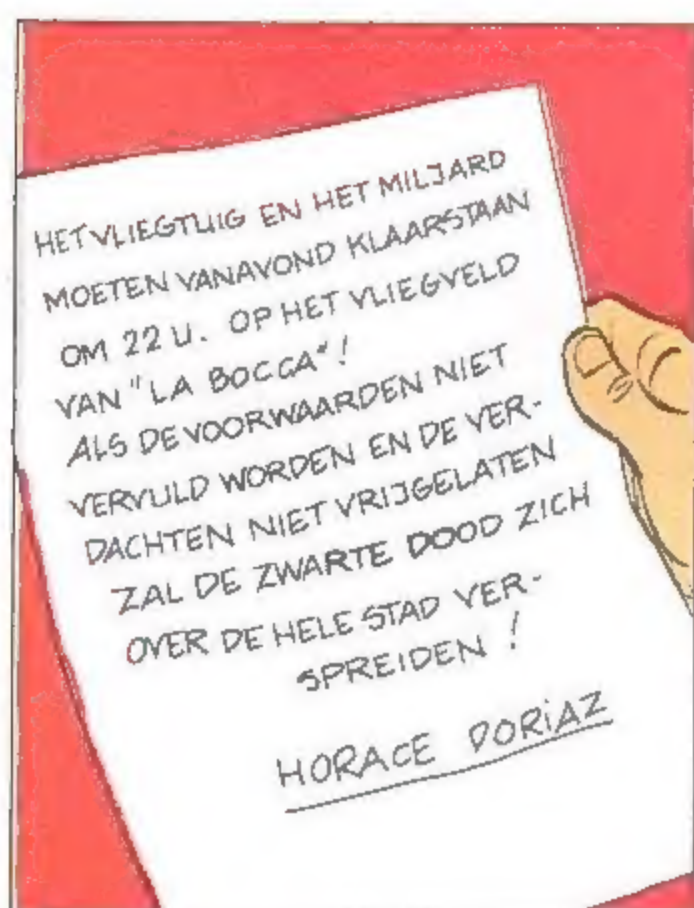 HET VLIEGTUIG EN HET MILJARD
MOETEN VANAVOND KLAARSTAAN
OM 22 U. OP HET VLIEGVELD
VAN "LA BOCCA"!
ALS DE VOORWAARDEN NIET
VERVULD WORDEN EN DE VER-
DACHTEN NIET VRIJGELATEN
ZAL DE ZWARTE DOOD ZICH
OVER DE HELE STAD VER-
SPREIDEN !
HORACE DORIAZ